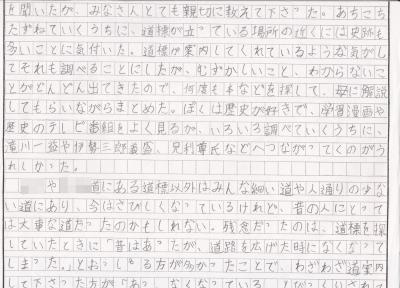 を聞いたが、みなさんとても親切に教えて下さった。あちこち
たずねていくうちに、道標が立っている場所の近くには史跡も
多いことに気付いた。道標が案内してくれているような気がし
てそれも調べることにしたが、むずかしいこと、わからないこ
とがどんどん出てきたので、何度も本などを探して、母に解説
してもらいながらまとめた。ぼくは歴史が好きで、学習漫画や
歴史のテレビ番組をよく見るが、いろいろ調べていくうちに、
滝川一益や伊勢三郎義盛、足利尊氏などへつながってくのがう
れしかった。
や 道にある道標以外はみんな細い道や人通りの少な
い道にあり、今はさびしくなっているけれど、昔の人にとって
は大事な道だったのかもしれない。残念だったのは、道標を探
していたときに「昔はあったが、道路を広げた時になくなって
しまった。」とおっしゃる方が多かったことで、わざわざ道案内
して下さった方が「あっ、なくなっている。」とびっくりされて